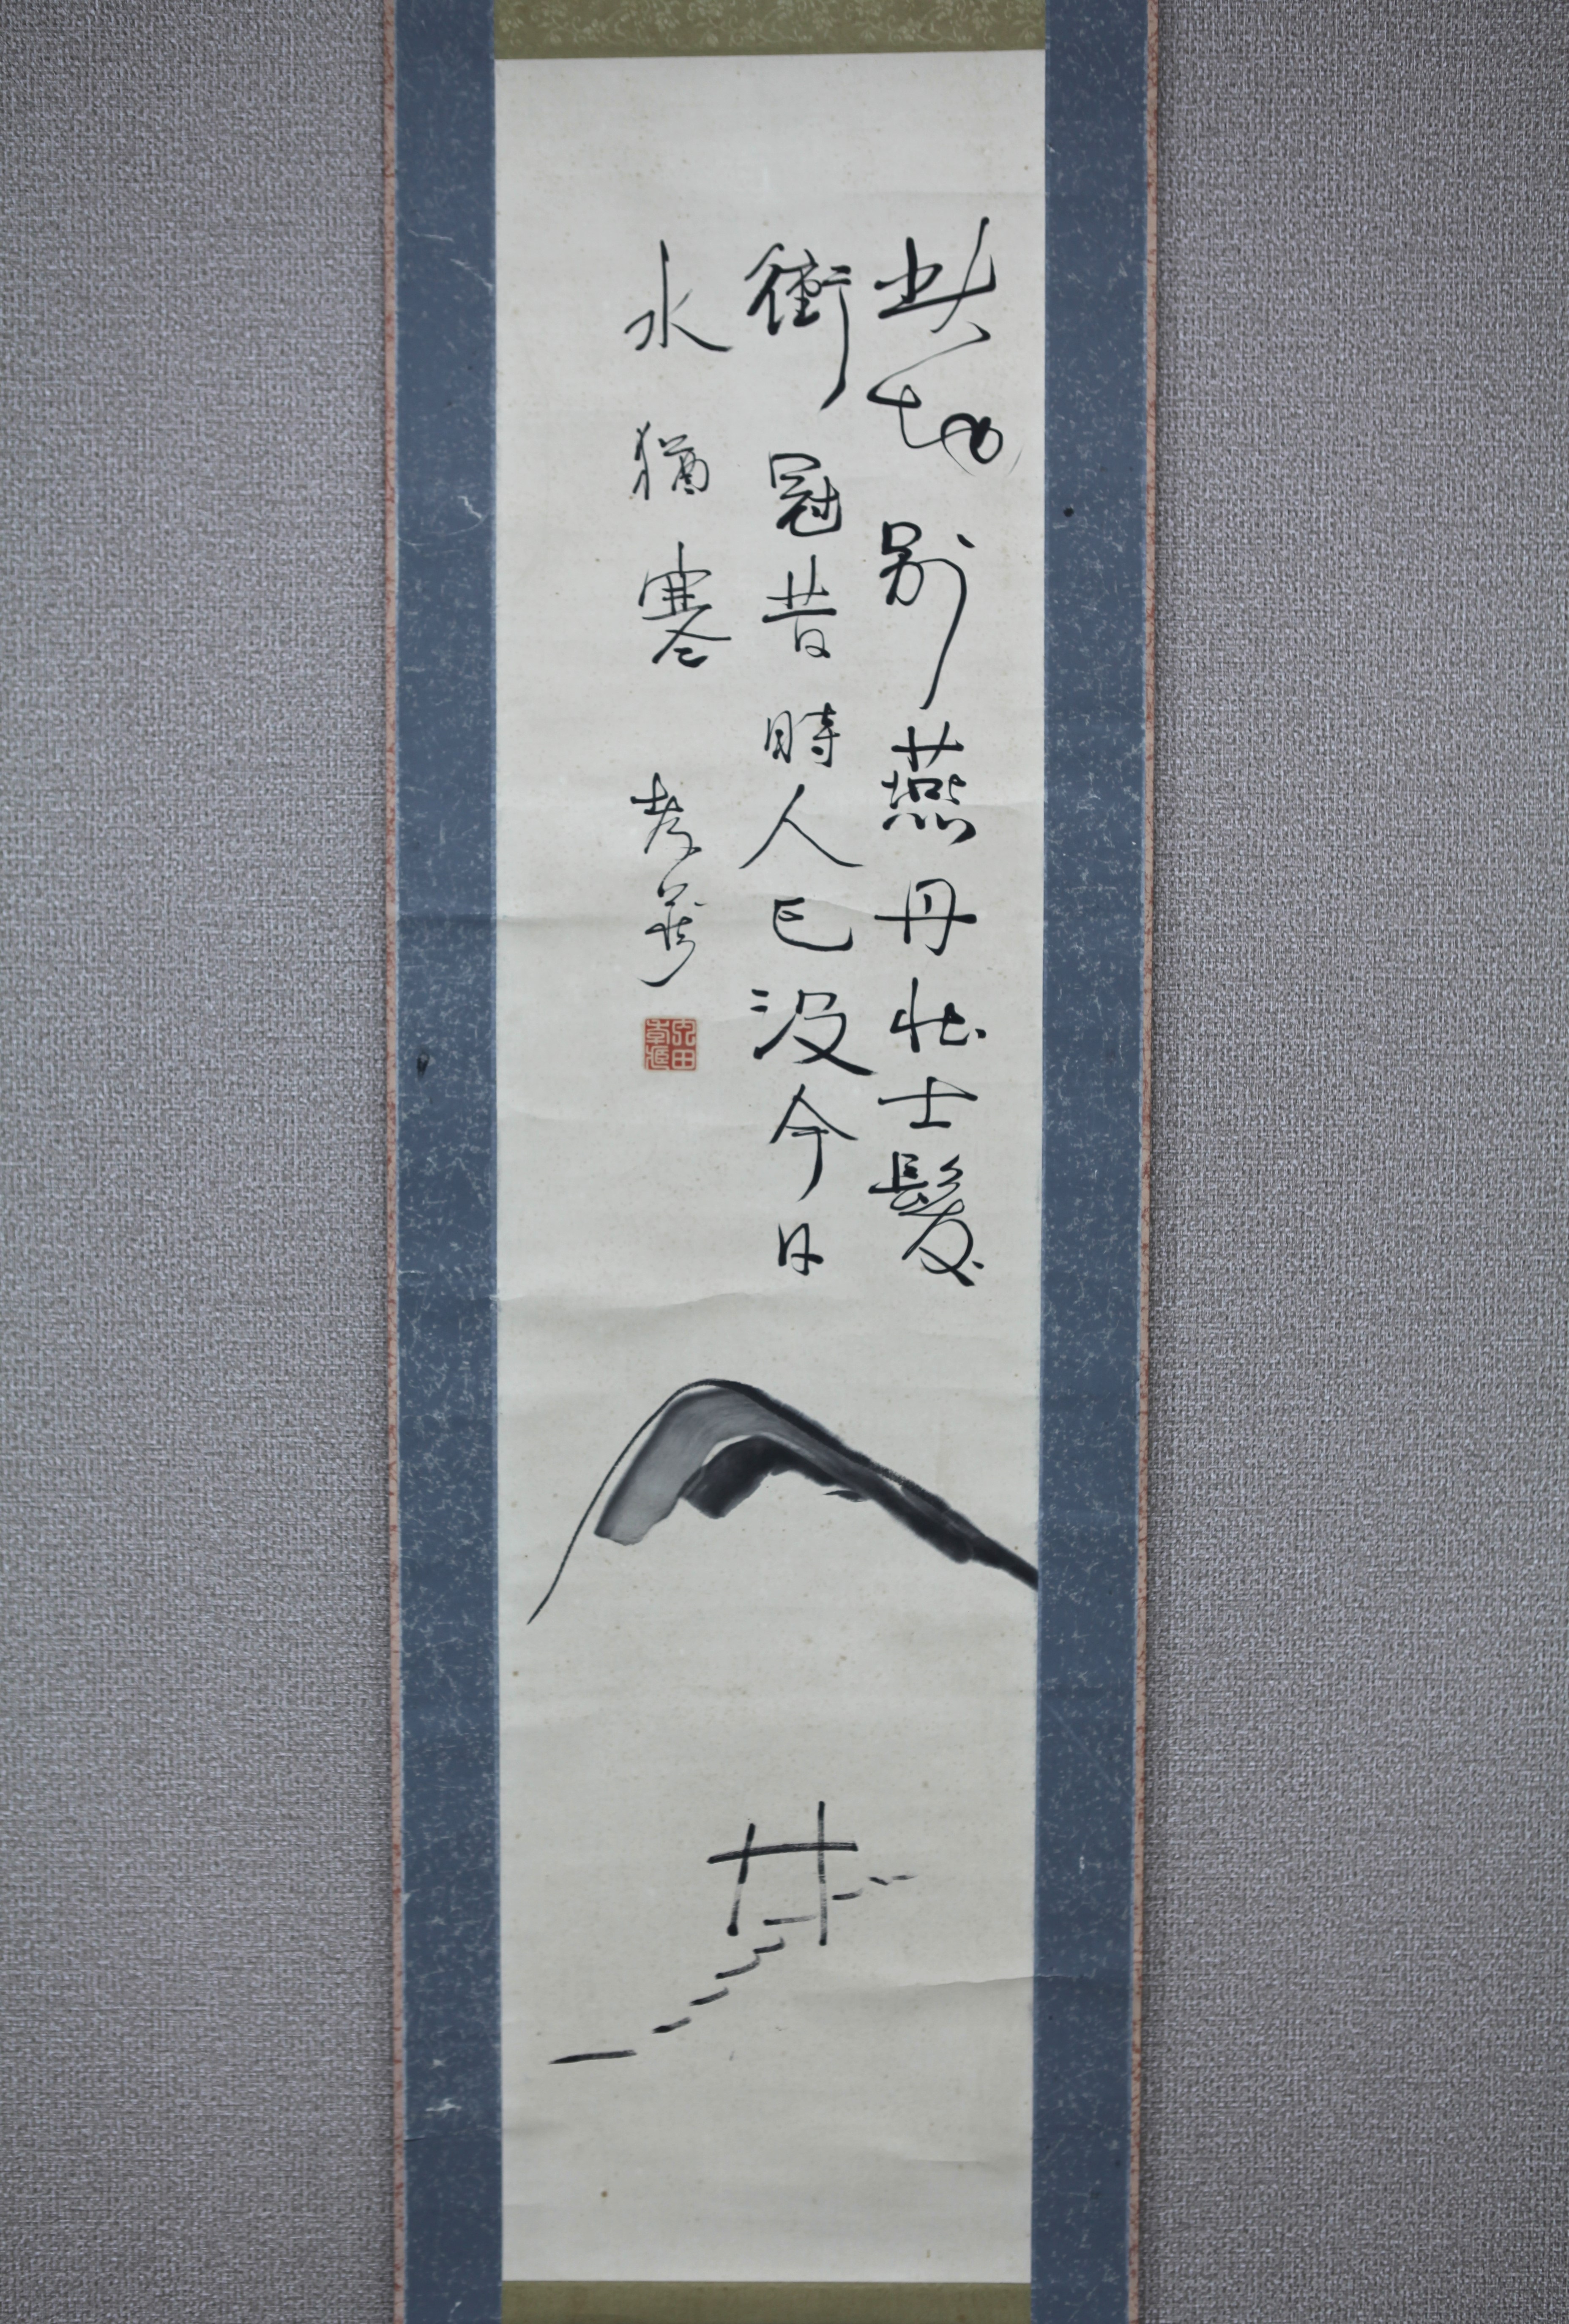 此地別燕丹壮士髮
衝冠昔時人已没今日
水猶寒